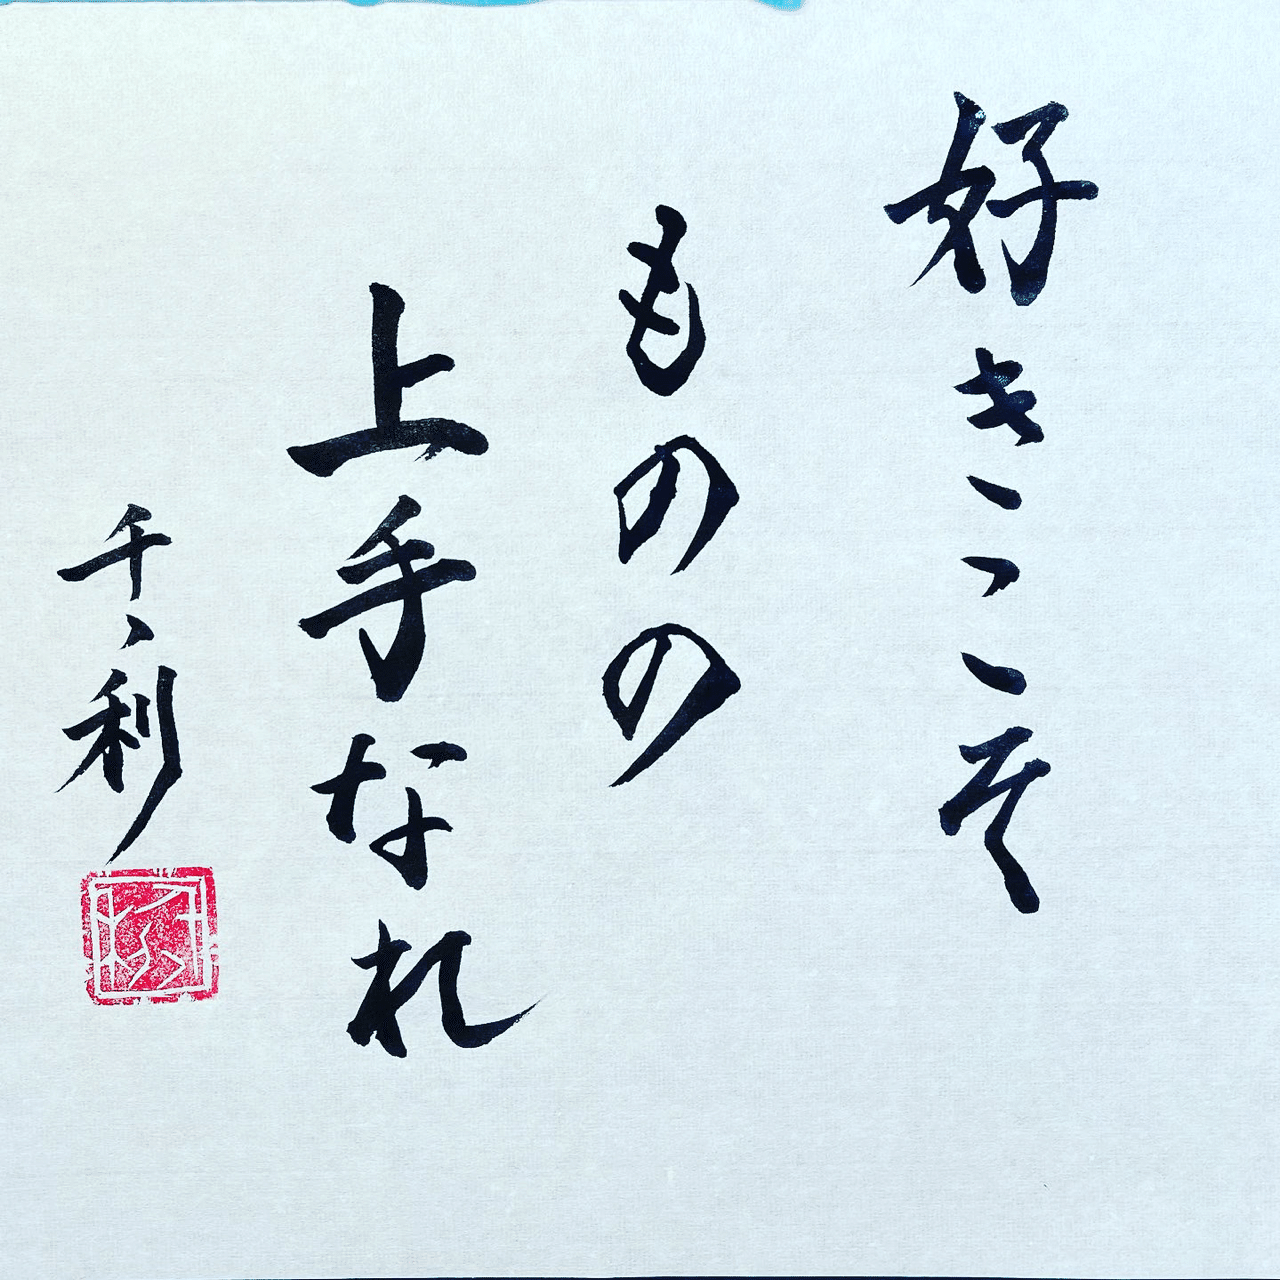 好きこそ
ものの
上手なれ
千々利